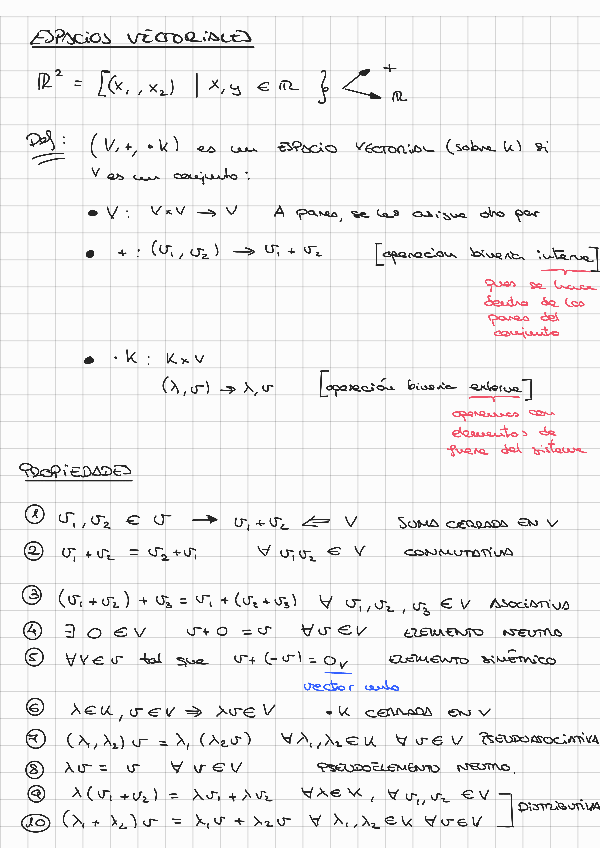 ESPACIOS VECTORIALES
ℝ² = [(x₁, x₂) | x, y ∈ ℝ } + ℝ
Def: (V, +, ·K) es un ESPACIO VECTORIAL (sobre K) si
V es un conjunto:
• V: V×V → V A pares, se les asigna otro par
• +: (v₁, v₂) → v₁ + v₂ [operacion binaria interna]
ques se hace
dentro de los
pares del
conjunto
• ·K: K×V
(λ, v) → λ, v [operación binaria externa]
operamos con
elementos de
fuera del sistema
PROPIEDADES
① v₁, v₂ ∈ v → v₁ + v₂ ⇐ V SUMA CERRADA EN V
② v₁ + v₂ = v₂ + v₁ ∀ v₁ v₂ ∈ V CONMUTATIVA
③ (v₁ + v₂) + v₃ = v₁ + (v₂ + v₃) ∀ v₁, v₂, v₃ ∈ V ASOCIATIVA
④ ∃ 0 ∈ V v + 0 = v ∀ v ∈ V ELEMENTO NEUTRO
⑤ ∀ V ∈ v tal que v + (-v) = 0ᵥ ELEMENTO SIMÉTRICO
vector nulo
⑥ λ ∈ K, v ∈ V ⇒ λv ∈ V ·K CERRADA EN V
⑦ (λ, λ₂) v = λ, (λ₂v) ∀ λ₁, λ₂ ∈ K ∀ v ∈ V PSEUDOASOCIATIVA
⑧ λv = v ∀ v ∈ V PSEUDOELEMENTO NEUTRO.
⑨ λ(v₁ + v₂) = λv₁ + λv₂ ∀ λ ∈ K, ∀ v₁, v₂ ∈ V DISTRIBUTIVA
⑩ (λ₁ + λ₂) v = λ₁v + λ₂v ∀ λ₁, λ₂ ∈ K ∀ v ∈ V